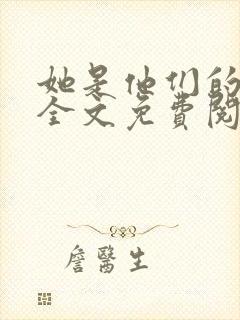 她是他们的
全文免費閱
詹醫生